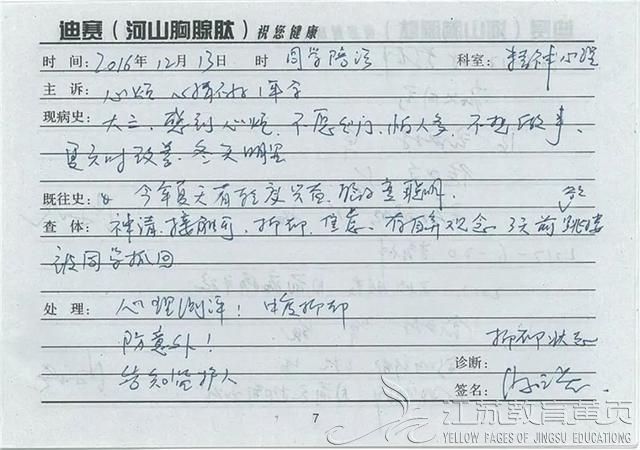 迪赛（河山胸腺肽）祝您健康
时 间: 2016年12月13日 时 同学陪诊 科室: 精神心理
主 诉: 心烦、心情不好1年余
现病史: 大三、感到心烦、不愿出门、怕人多、不想做事、
夏天时改善、冬天明显
既往史: 今年夏天有轻度兴奋、脑子变聪明.
查 体: 神清、接触可、抑郁、焦虑、有自弃观念 3天前欲跳楼
被同学抓回
处 理: 心理测评: 中度抑郁
防意外!
告知监护人
抑郁状态
诊断:
签名:
7
江苏教育黄页
YELLOW PAGES OF JINGSU EDUCATIONG